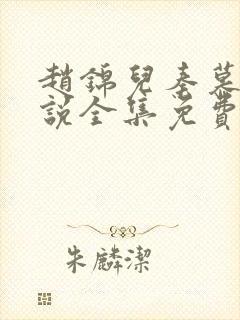 趙錦兒秦慕
說全集免費
朱麟潔